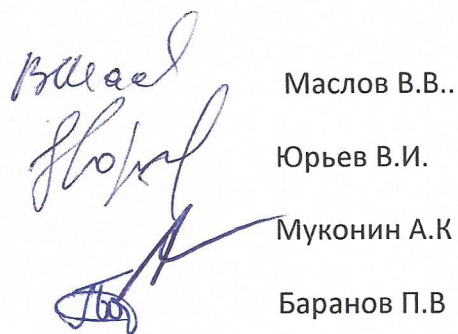 Маслов В.В..
Юрьев В.И.
Муконин А.К
Баранов П.В